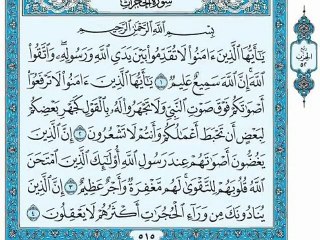 سورة الحجرات
بِسْمِ اللَّهِ الرَّحْمَٰنِ الرَّحِيمِ
يَا أَيُّهَا الَّذِينَ ءَامَنُوا لَا تُقَدِّمُوا بَيْنَ يَدَيِ اللَّهِ وَرَسُولِهِ ۖ وَاتَّقُوا
اللَّهَ إِنَّ اللَّهَ سَمِيعٌ عَلِيمٌ ١ يَا أَيُّهَا الَّذِينَ ءَامَنُوا لَا تَرْفَعُوا
أَصْوَاتَكُمْ فَوْقَ صَوْتِ النَّبِيِّ وَلَا تَجْهَرُوا لَهُ بِالْقَوْلِ كَجَهْرِ بَعْضِكُمْ
لِبَعْضٍ أَن تَحْبَطَ أَعْمَالُكُمْ وَأَنتُمْ لَا تَشْعُرُونَ ٢ إِنَّ الَّذِينَ
يَغُضُّونَ أَصْوَاتَهُمْ عِندَ رَسُولِ اللَّهِ أُولَٰئِكَ الَّذِينَ امْتَحَنَ
اللَّهُ قُلُوبَهُمْ لِلتَّقْوَىٰ لَهُم مَّغْفِرَةٌ وَأَجْرٌ عَظِيمٌ ٣ إِنَّ الَّذِينَ
يُنَادُونَكَ مِن وَرَاءِ الْحُجُرَاتِ أَكْثَرُهُمْ لَا يَعْقِلُونَ ٤
٥١٥